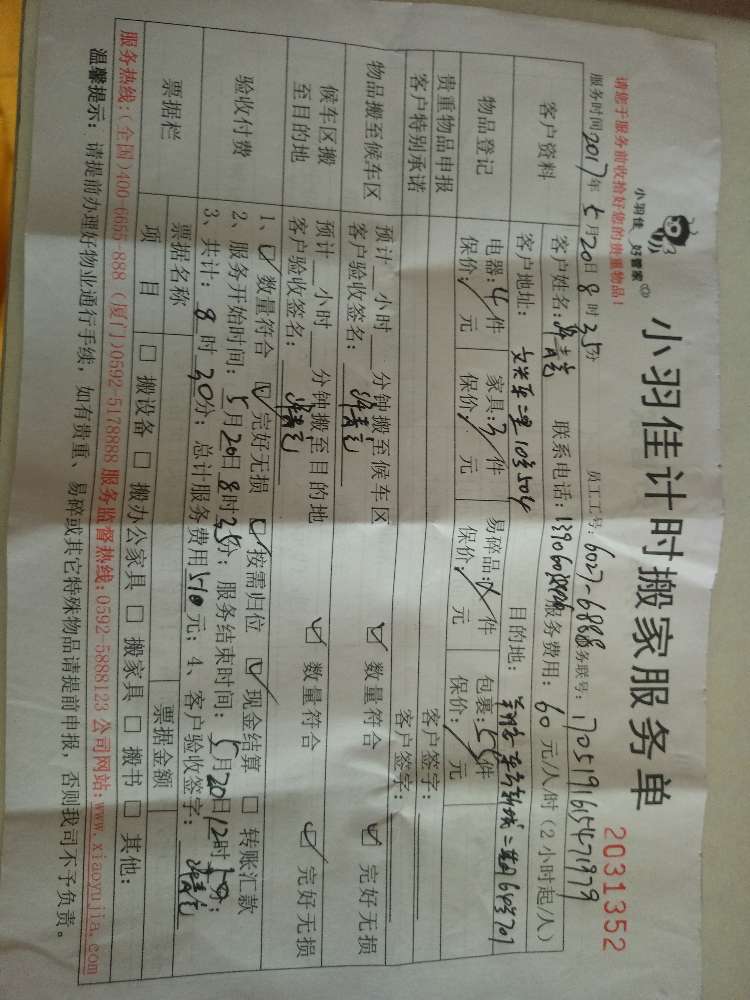 小羽佳 好管家
小羽佳计时搬家服务单
2031352
请您于服务前收拾好您的贵重物品！
服务时间2017年5月20日8时35分 员工工号：6027-6888 务联号：170519165471979
客户资料
客户姓名： 联系电话： 服务费用：60元/人/时(2小时起/人)
客户地址： 二里10号504 目的地： 二期64号701
物品登记
电器：4件 家具：3件 易碎品： 件 包裹：55件
保价：/元 保价：/元 保价：/元 保价：/元
贵重物品申报 客户签字：
客户特别承诺 客户签字：
物品搬至候车区
预计__小时__分钟搬至候车区 ☑ 数量符合 ☑ 完好无损
客户验收签名：
候车区搬至目的地
预计__小时__分钟搬至目的地 ☑ 数量符合 ☑ 完好无损
客户验收签名：
验收付费
1、☑ 数量符合 ☑ 完好无损 ☑ 按需归位 ☑ 现金结算 □ 转账汇款
2、服务开始时间：5月20日8时35分；服务结束时间：5月20日12时 分；
3、共计：8时30分；总计服务费用510元；4、客户验收签字：
票据栏
票据名称 票据金额
项目 □ 搬设备 □ 搬办公家具 □ 搬家具 □ 搬书 □ 其他：
服务热线：(全国)400-6655-888 (厦门)0592-5178888 服务监督热线：0592-5888123 公司网站：www.xiaoyujia.com
温馨提示：请提前办理好物业通行手续，如有贵重、易碎或其它特殊物品请提前申报，否则我司不予负责。